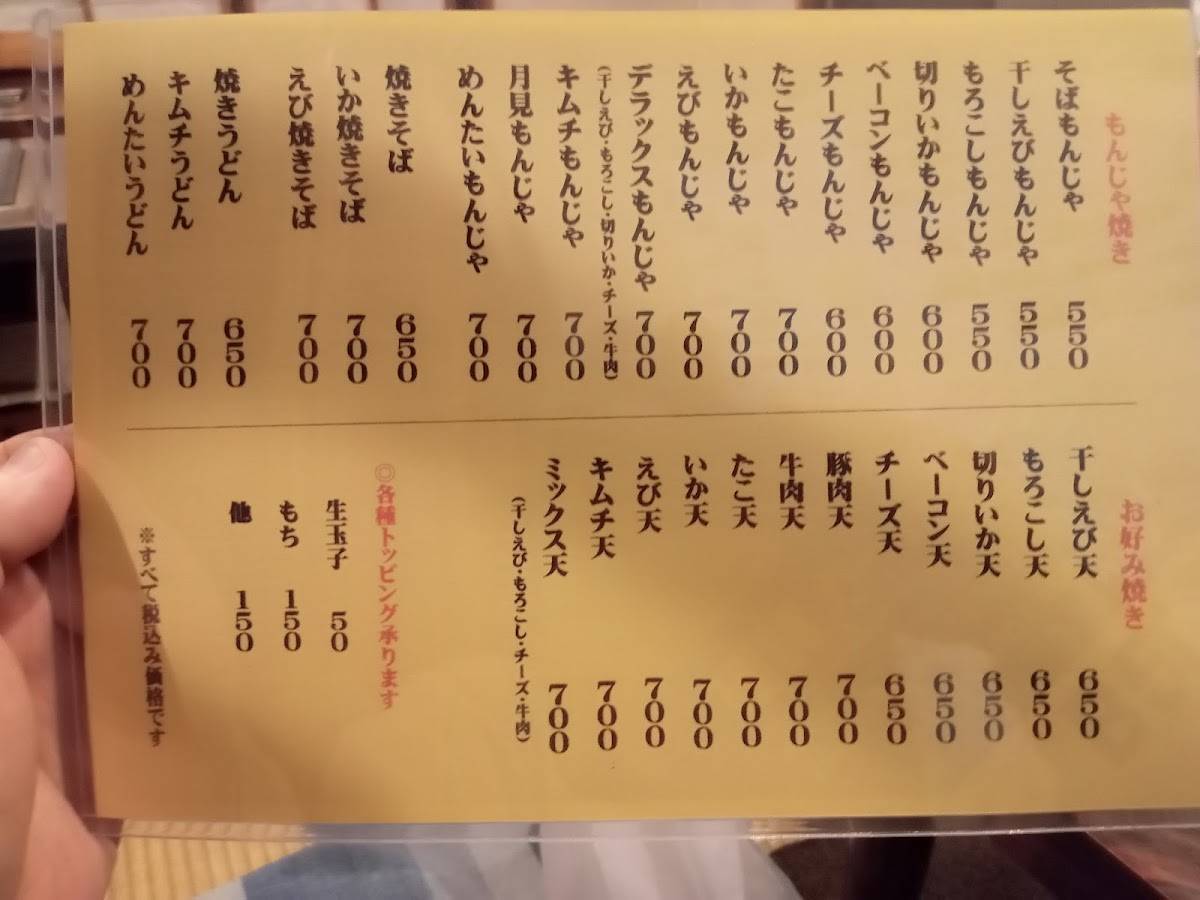 もんじゃ焼き
そばもんじゃ 550
干しえびもんじゃ 550
もろこしもんじゃ 550
切りいかもんじゃ 600
ベーコンもんじゃ 600
チーズもんじゃ 600
たこもんじゃ 700
いかもんじゃ 700
えびもんじゃ 700
デラックスもんじゃ 700
(干しえび・もろこし・切りいか・チーズ・牛肉)
キムチもんじゃ 700
月見もんじゃ 700
めんたいもんじゃ 700
焼きそば 650
いか焼きそば 700
えび焼きそば 700
焼きうどん 650
キムチうどん 700
めんたいうどん 700
お好み焼き
干しえび天 650
もろこし天 650
切りいか天 650
ベーコン天 650
チーズ天 650
豚肉天 700
牛肉天 700
たこ天 700
いか天 700
えび天 700
キムチ天 700
ミックス天 700
(干しえび・もろこし・チーズ・牛肉)
◎各種トッピング承ります
生玉子 50
もち 150
他 150
※すべて税込み価格です